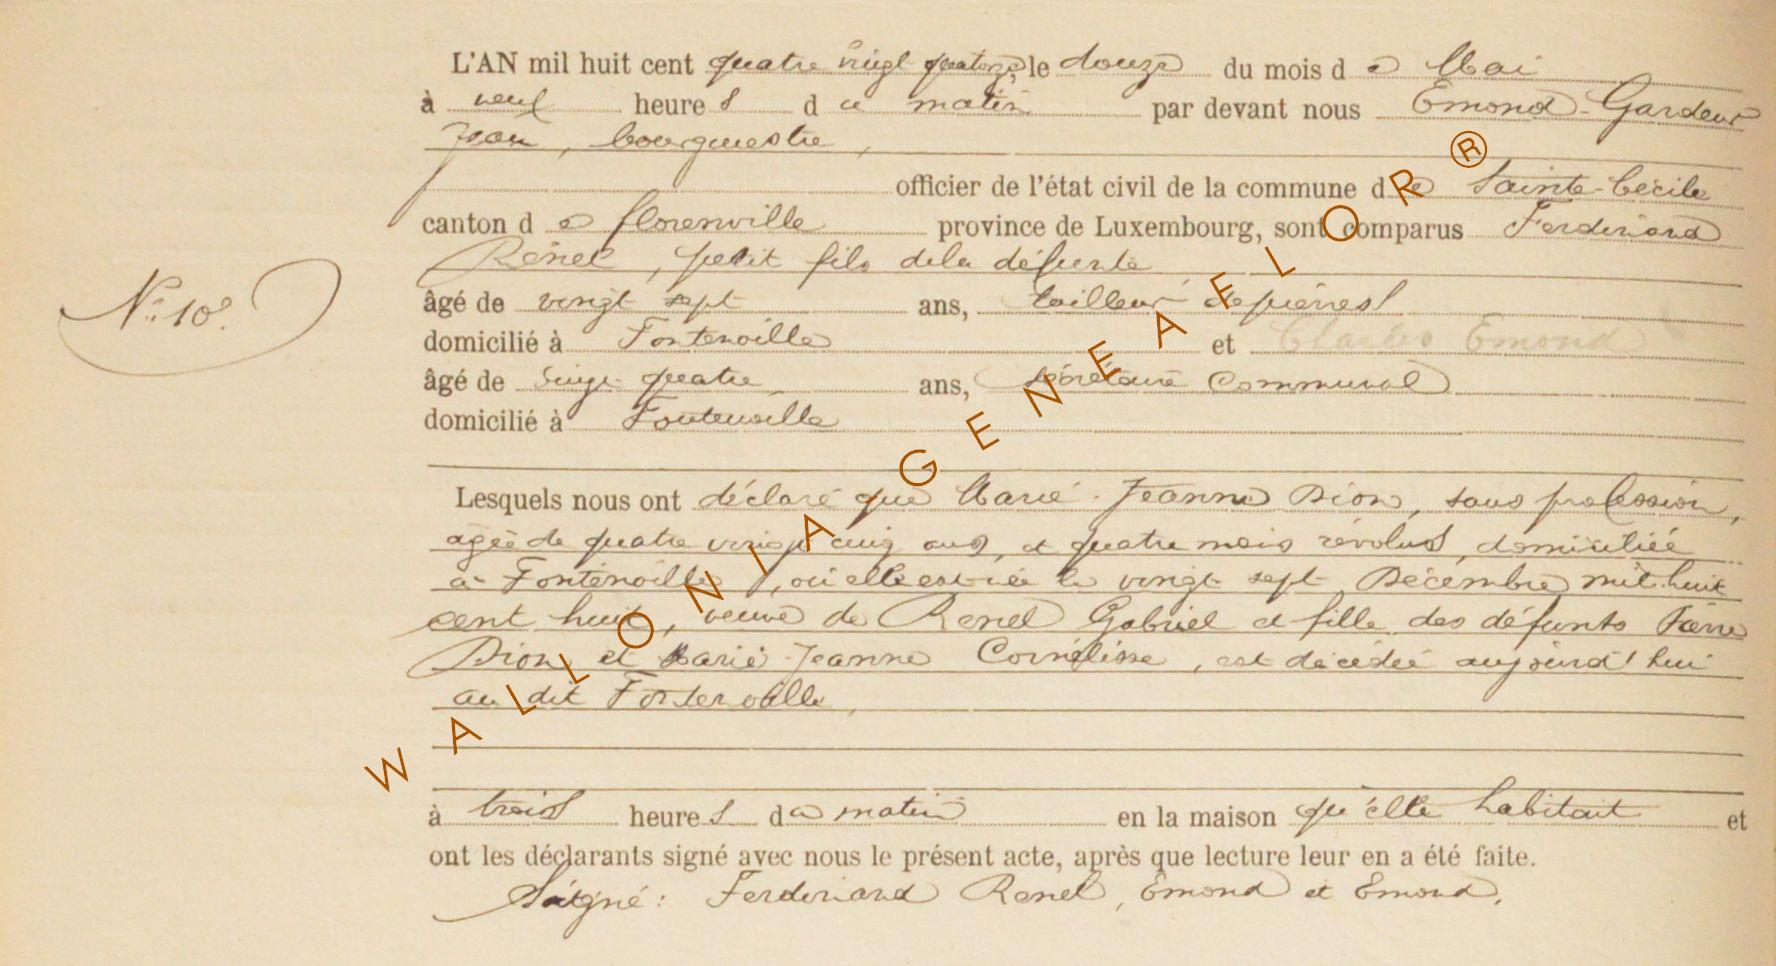 L'AN mil huit cent quatre vingt quatorze, le douze du mois d e Mai
à neuf heure s d u matin par devant nous Emond-Gardeur
Jean, bourgmestre,
officier de l'état civil de la commune d e Sainte-Cécile
canton d e Florenville province de Luxembourg, sont comparus Ferdinand
Renel, petit fils de la défunte
N° 10
âgé de vingt sept ans, tailleur de pierres
domicilié à Fontenoille et Charles Emond
âgé de quatre ans, sécretaire Communal
domicilié à Fontenoille
Lesquels nous ont déclaré que Marie-Jeanne Dion, sans profession,
agée de quatre vingt cinq ans, et quatre mois révolus, domiciliée
a Fontenoille, où elle est née le vingt sept Décembre mil huit
cent huit, veuve de Renel Gabriel et fille des défunts Pierre
Dion et Marie-Jeanne Cornélisse, est décédée aujourd'hui
au dit Fontenoille,
à trois heure s du matin en la maison qu'elle habitait et
ont les déclarants signé avec nous le présent acte, après que lecture leur en a été faite.
Signé: Ferdinand Renel, Emond et Emond.
WALLONIA GENEAFLOR ®